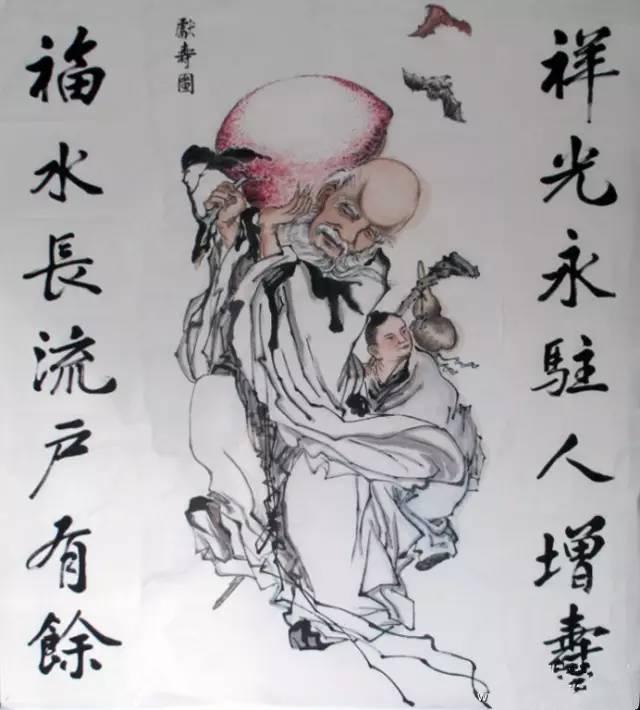 祥光永駐人增壽
獻壽圖
福水長流戶有餘